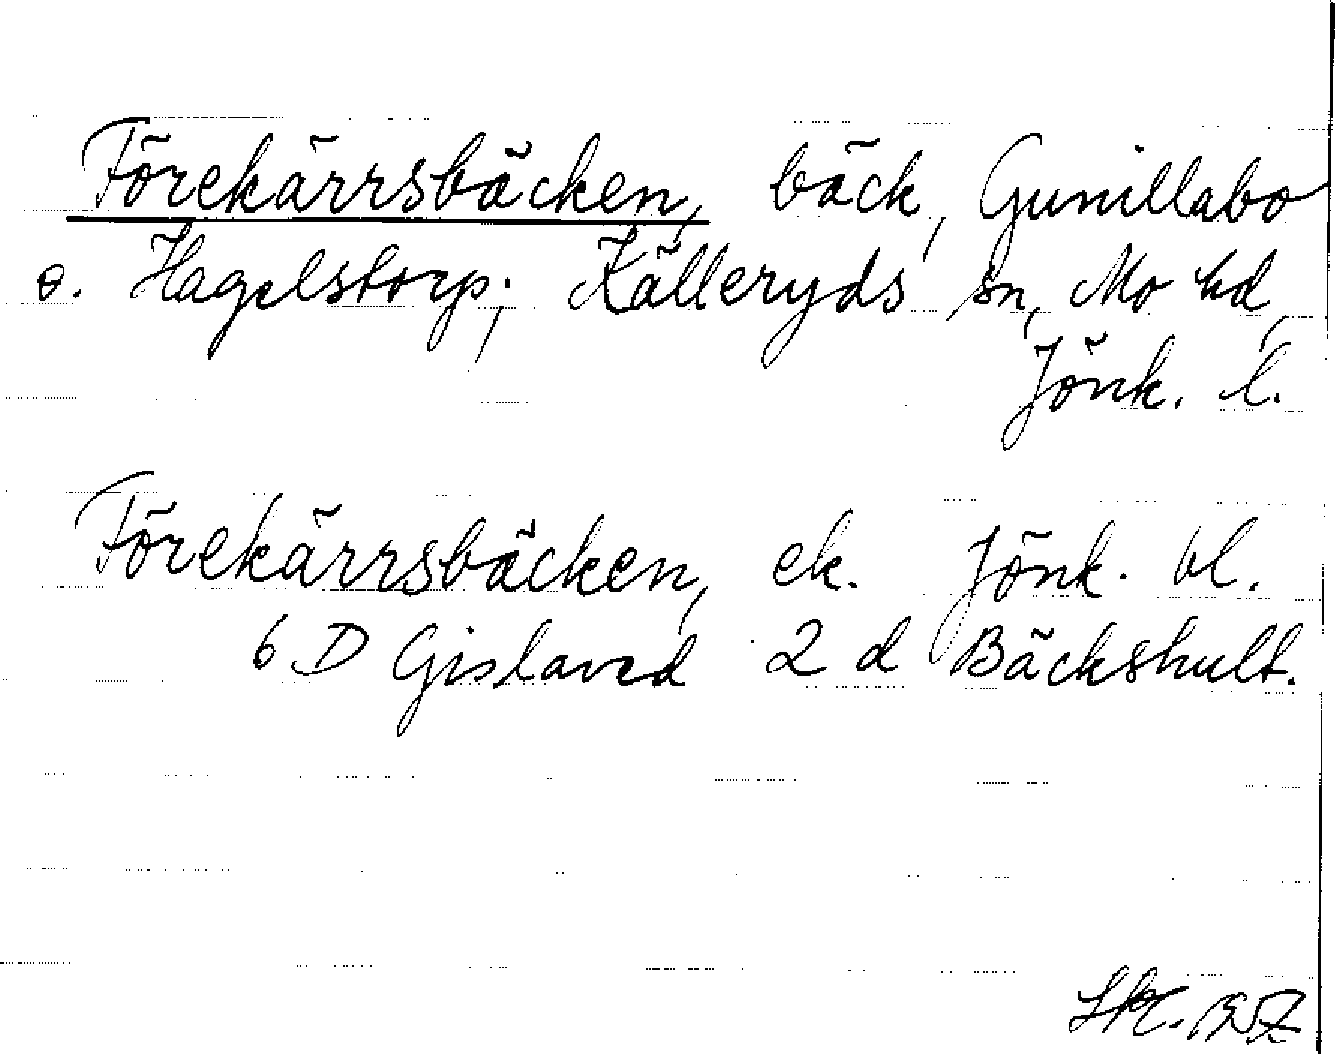 Förekärrsbäcken, bäck, Gunillabo
o. Hagelstorp; Källeryds sn, Mo hd,
Jönk. l.
Förekärrsbäcken, ek. Jönk. bl.
6 D Gislaved 2 d Bäckshult.